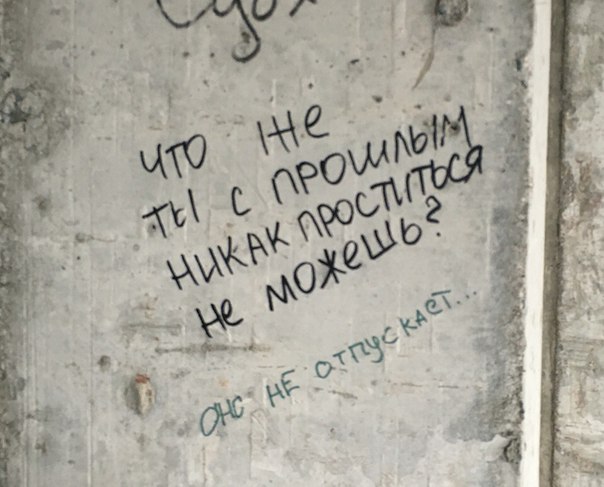 что же
ты с прошлым
никак проститься
не можешь?
оно не отпускает...